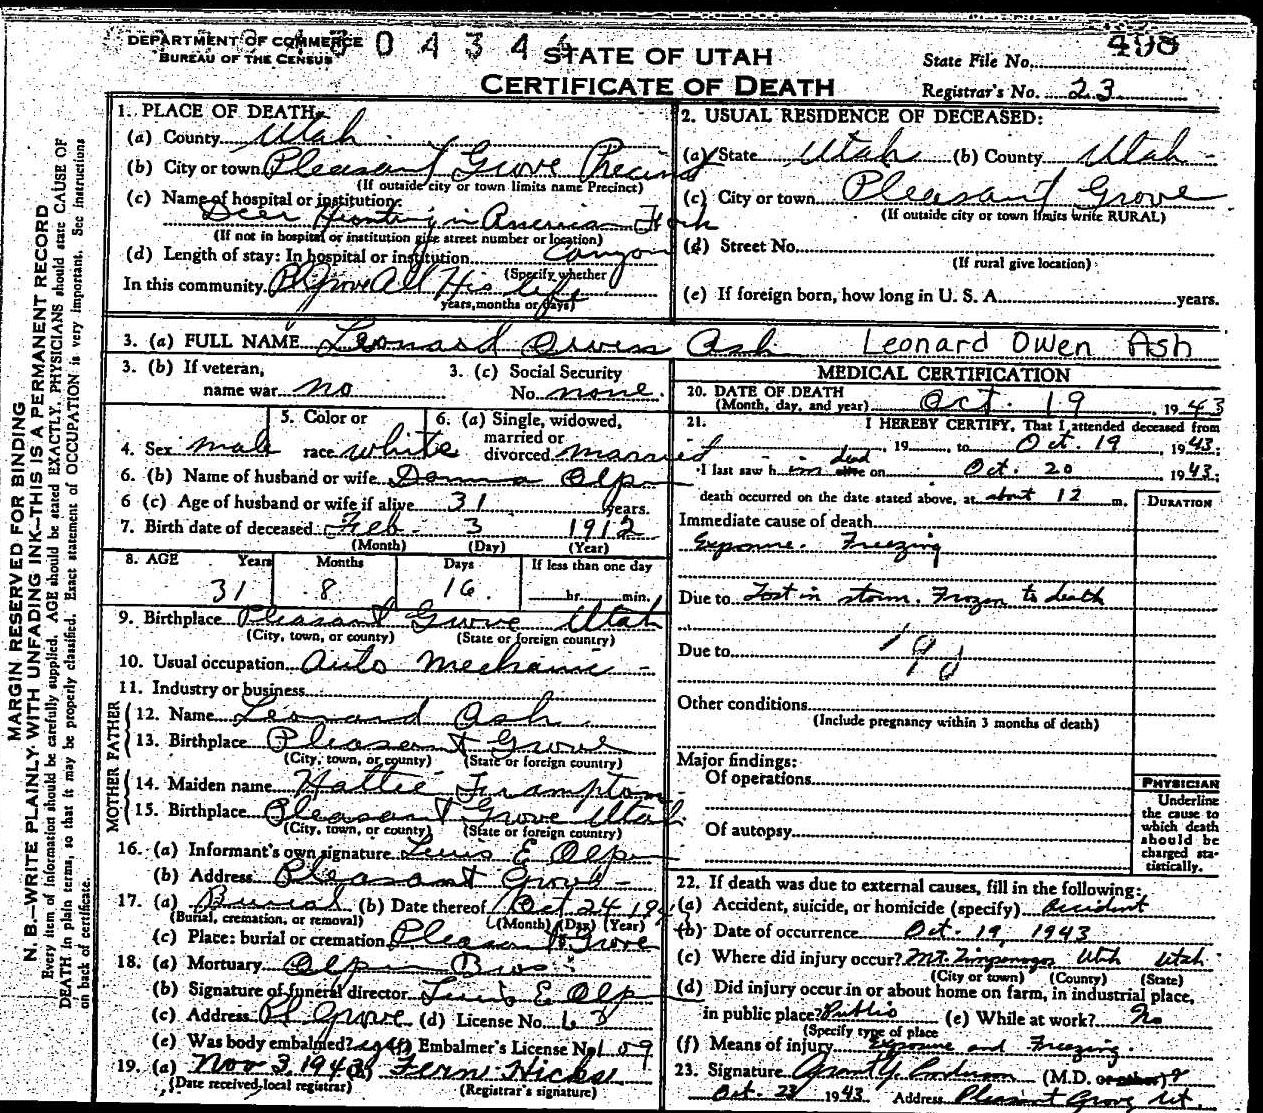 DEPARTMENT OF COMMERCE
BUREAU OF THE CENSUS
0 4 3 4
STATE OF UTAH
CERTIFICATE OF DEATH
498
State File No.
Registrar's No. 23
MARGIN RESERVED FOR BINDING
N. B.—WRITE PLAINLY WITH UNFADING INK—THIS IS A PERMANENT RECORD
Every item of information should be carefully supplied. AGE should be stated EXACTLY. PHYSICIANS should state CAUSE OF
DEATH in plain terms, so that it may be properly classified. Exact statement of OCCUPATION is very important. See instructions
on back of certificate.
1. PLACE OF DEATH
(a) County Utah
(b) City or town Pleasant Grove Precinct
(If outside city or town limits name Precinct)
(c) Name of hospital or institution:
Deer Hunting in American Fork
(If not in hospital or institution give street number or location)
(d) Length of stay: In hospital or institution Canyon
(Specify whether
In this community Pl Grove All His life
years, months or days)
2. USUAL RESIDENCE OF DECEASED:
(a) State Utah (b) County Utah
(c) City or town Pleasant Grove
(If outside city or town limits write RURAL)
(d) Street No.
(If rural give location)
(e) If foreign born, how long in U. S. A. years.
3. (a) FULL NAME Leonard Owen Ash Leonard Owen Ash
3. (b) If veteran,
name war no
3. (c) Social Security
No. none
4. Sex male
5. Color or
race white
6. (a) Single, widowed,
married or
divorced married
6. (b) Name of husband or wife Donna Olpin
6 (c) Age of husband or wife if alive 31 years.
7. Birth date of deceased Feb. 3 1912
(Month) (Day) (Year)
8. AGE Years Months Days If less than one day
31 8 16 hr. min.
9. Birthplace Pleasant Grove Utah
(City, town, or county) (State or foreign country)
10. Usual occupation Auto Mechanic
11. Industry or business
FATHER
12. Name Leonard Ash
13. Birthplace Pleasant Grove
(City, town, or county) (State or foreign country)
MOTHER
14. Maiden name Hattie Frampton
15. Birthplace Pleasant Grove Utah
(City, town, or county) (State or foreign country)
16. (a) Informant's own signature Lewis E Olpin
(b) Address Pleasant Grove
17. (a) Burial (b) Date thereof Oct 24 194
(Burial, cremation, or removal) (Month) (Day) (Year)
(c) Place: burial or cremation Pleasant Grove
18. (a) Mortuary Olpin Bros
(b) Signature of funeral director Lewis E Olpin
(c) Address Pl Grove (d) License No.
(e) Was body embalmed? yes (f) Embalmer's License No. 109
19. (a) Nov 3, 1943 (b) Fern Hicks
(Date received local registrar) (Registrar's signature)
MEDICAL CERTIFICATION
20. DATE OF DEATH
(Month, day, and year) Oct. 19, 1943
21. I HEREBY CERTIFY, That I attended deceased from
, 19 , to Oct. 19 , 1943;
I last saw him dead alive on Oct. 20 1943;
death occurred on the date stated above, at about 12 m.
DURATION
Immediate cause of death
Exposure. Freezing
Due to Lost in storm. Frozen to death
Due to
Other conditions
(Include pregnancy within 3 months of death)
Major findings:
Of operations
Of autopsy
PHYSICIAN
Underline
the cause to
which death
should be
charged sta-
tistically.
22. If death was due to external causes, fill in the following:
(a) Accident, suicide, or homicide (specify) Accident
(b) Date of occurrence Oct. 19, 1943
(c) Where did injury occur? Mt. Timpanogos Utah Utah
(City or town) (County) (State)
(d) Did injury occur in or about home on farm, in industrial place,
in public place? Public (e) While at work? No
(Specify type of place
(f) Means of injury Exposure and Freezing.
23. Signature Grant Y. Anderson (M.D. or other)
Oct. 23 1943 Address Pleasant Grove Ut.